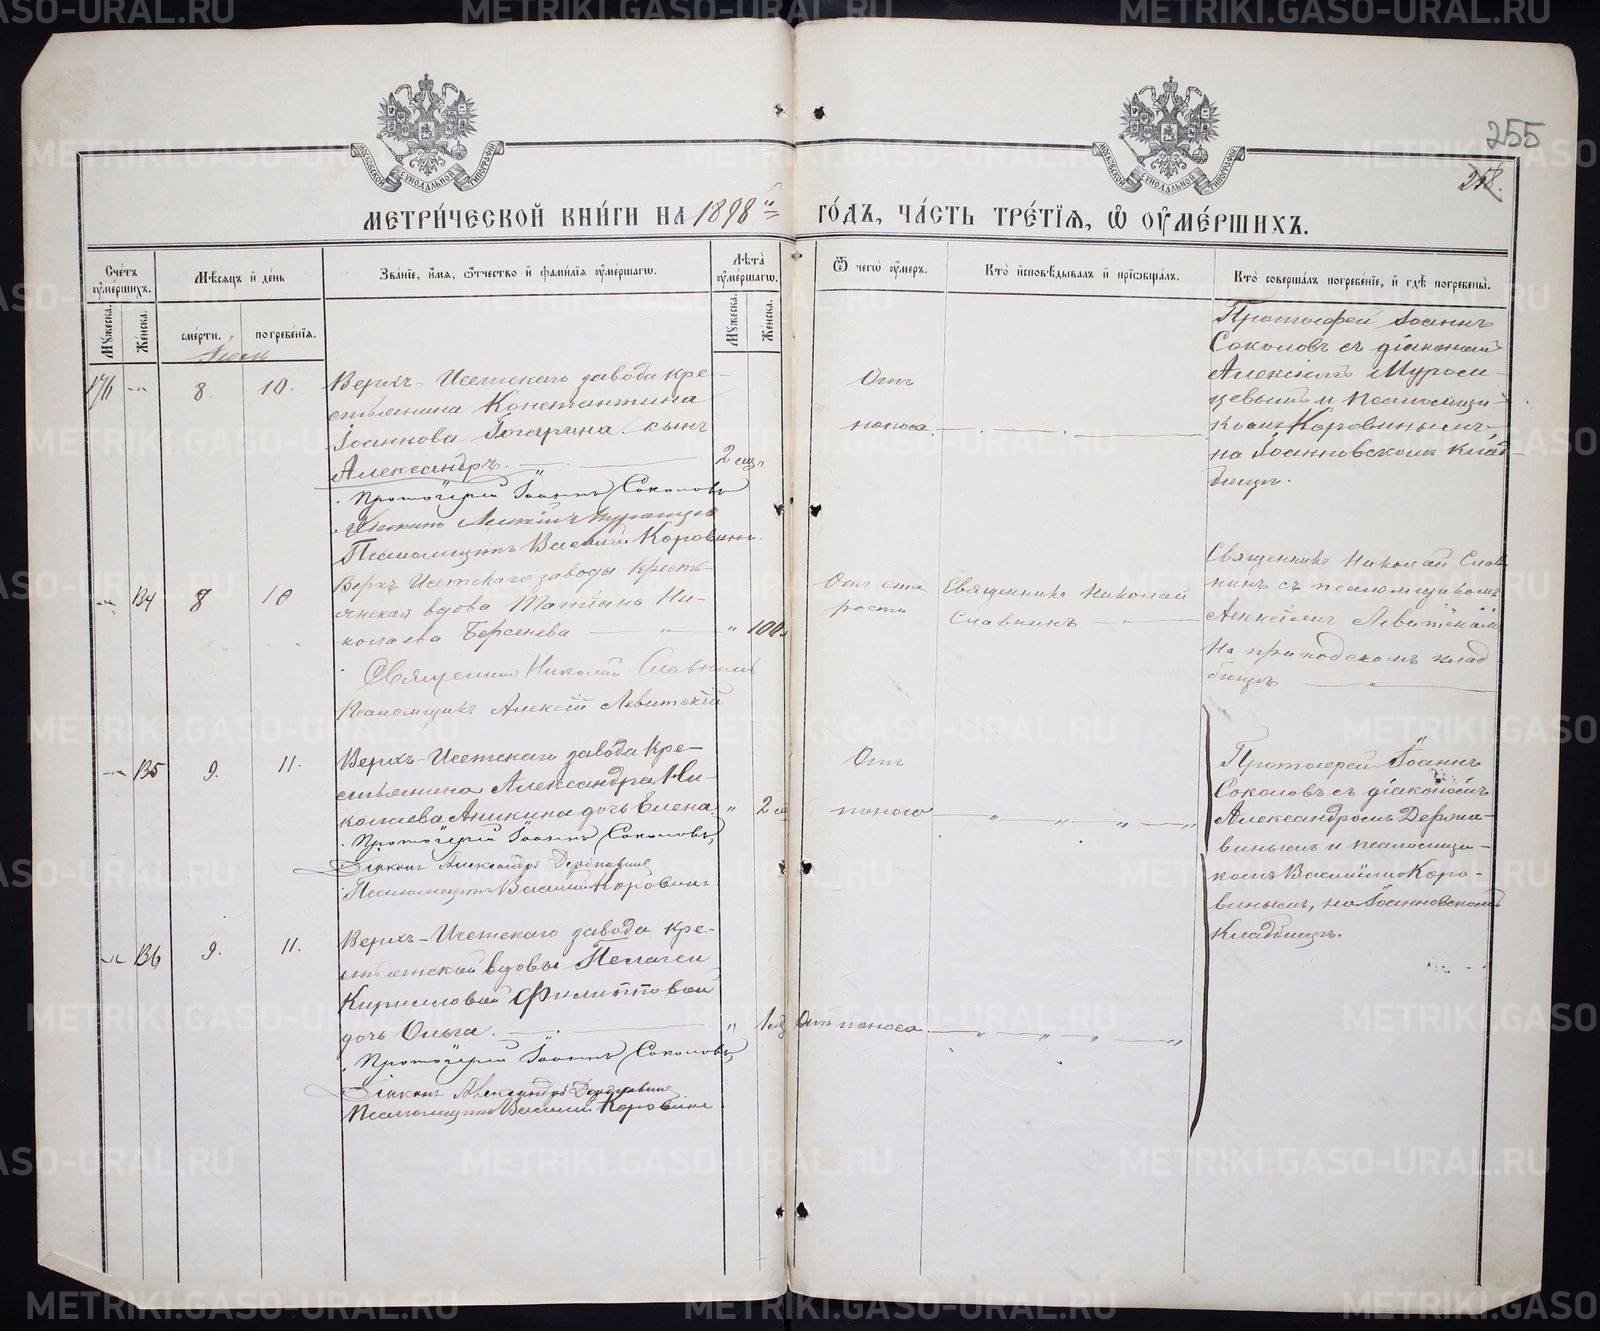 255
268.
МЕТРИ́ЧЕСКОЙ КНИ́ГИ НА 1898й ГО́ДЪ, ЧА́СТЬ ТРЕ́ТІЯ, Ѡ ОУМЕ́РШИХЪ.
Сче́тъ оуме́ршихъ.
Мѣ́сяцъ и де́нь
Зва́нїе, и́мя, ѻ́тчество и фами́лїя оуме́ршагѡ.
Лѣ́та оуме́ршагѡ.
Ѿ чегѡ̀ оу́меръ.
Кто̀ и҆сповѣ́дывалъ и҆ прїѡбща́лъ.
Кто̀ соверша́лъ погребе́нїе, и҆ гдѣ̀ погребены̀.
Мꙋ́жеска.
Же́нска.
сме́рти.
погребе́нїя.
Мꙋ́жеска.
Же́нска.
Іюль
176 8 10.
Верхъ-Исетскаго завода кре-
стьянина Константина
Іоаннова Гогарина сынъ
Александръ. 2 мц.
Протоіерей Іоаннъ Соколовъ
Псаломщикъ Василій Коровинъ.
Отъ
поноса.
Протоіерей Іоаннъ
Соколовъ съ діакономъ
Алексіемъ Мурома-
цевымъ и псаломщи-
комъ Коровинымъ,
на Іоанновскомъ клад-
бищѣ.
134 8 10
Верхъ Исетскаго завода кресть-
янская вдова Татіана Ни-
колаева Берсенева 100
Священникъ Николай Славнинъ
Псаломщикъ Алексій Левитскій
Отъ ста
рости
Священникъ Николай
Славнинъ
Священникъ Николай Слав
нинъ съ псаломщикомъ
Алексіемъ Левитскимъ
На приходскомъ клад
бищѣ
135 9. 11.
Верхъ-Исетскаго завода кре-
стьянина Александра Ни-
колаева Аникина дочь Елена. 2 мц
Протоіерей Іоаннъ Соколовъ
Діаконъ Александръ Державинъ
Псаломщикъ Василій Коровинъ.
Отъ
поноса
Протоіерей Іоаннъ
Соколовъ съ діакономъ
Александромъ Держа-
винымъ и псаломщи-
комъ Василіемъ Коро-
винымъ, на Іоанновскомъ
Кладбищѣ.
136 9. 11.
Верхъ-Исетскаго завода кре-
стьянской вдовы Пелагеи
Кирилловой Филипповой
дочь Ольга. 1 мц
Отъ поноса.
Протоіерей Іоаннъ Соколовъ
Діаконъ Александръ Державинъ
Псаломщикъ Василій Коровинъ
METRIKI.GASO-URAL.RU